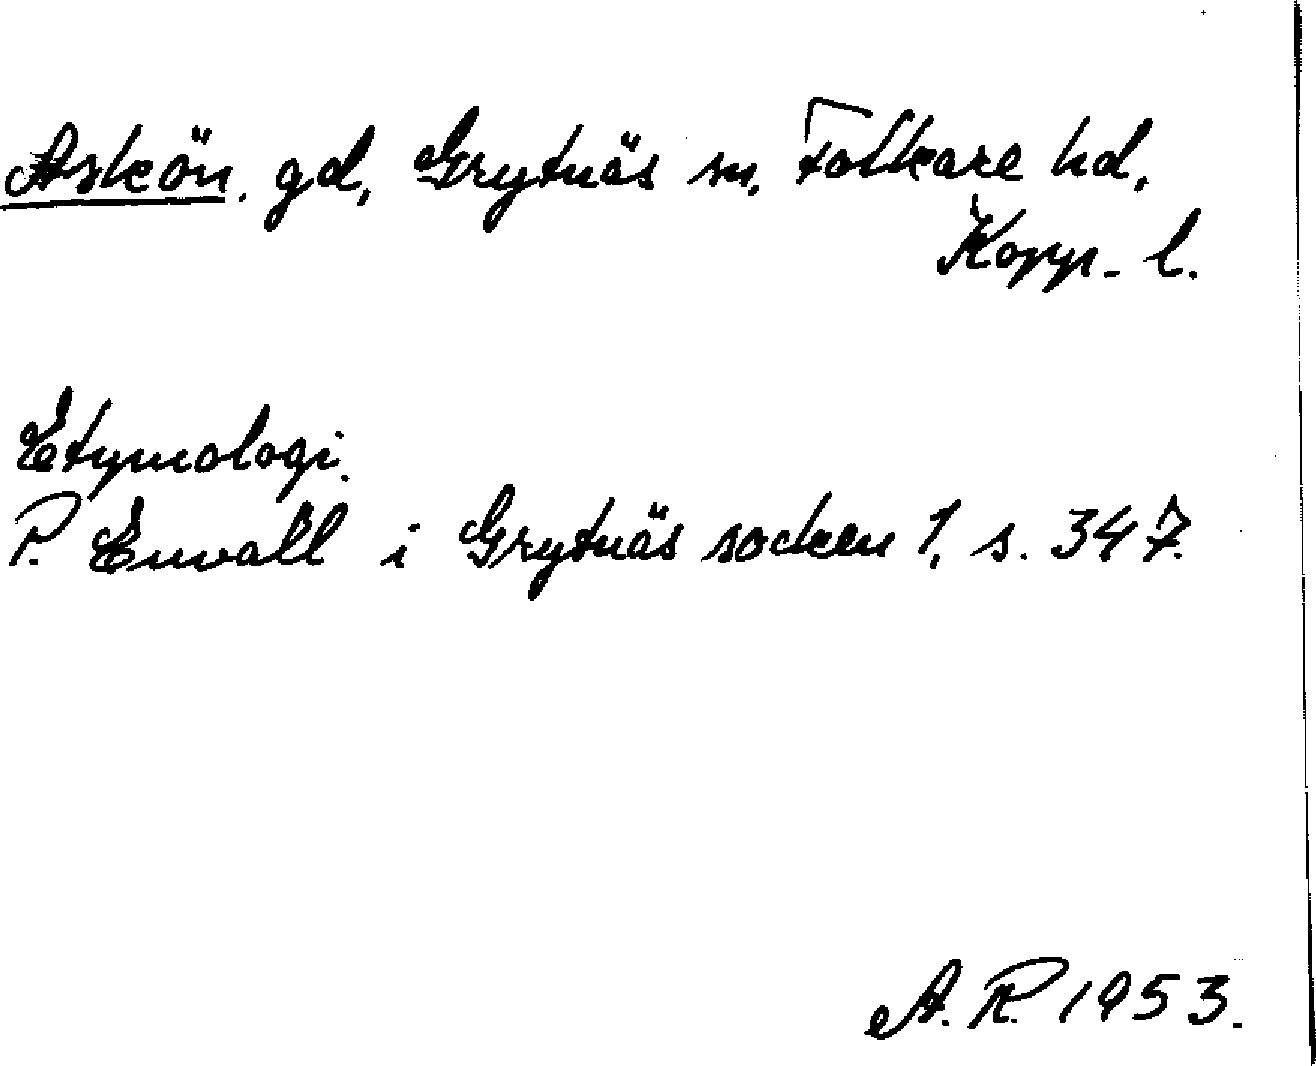 Askön. gd, Grytnäs sn, Folkare hd,
Kopp. l.
Etymologi.
P. Envall i Grytnäs socken 1, s. 347.
A. R. 1953.